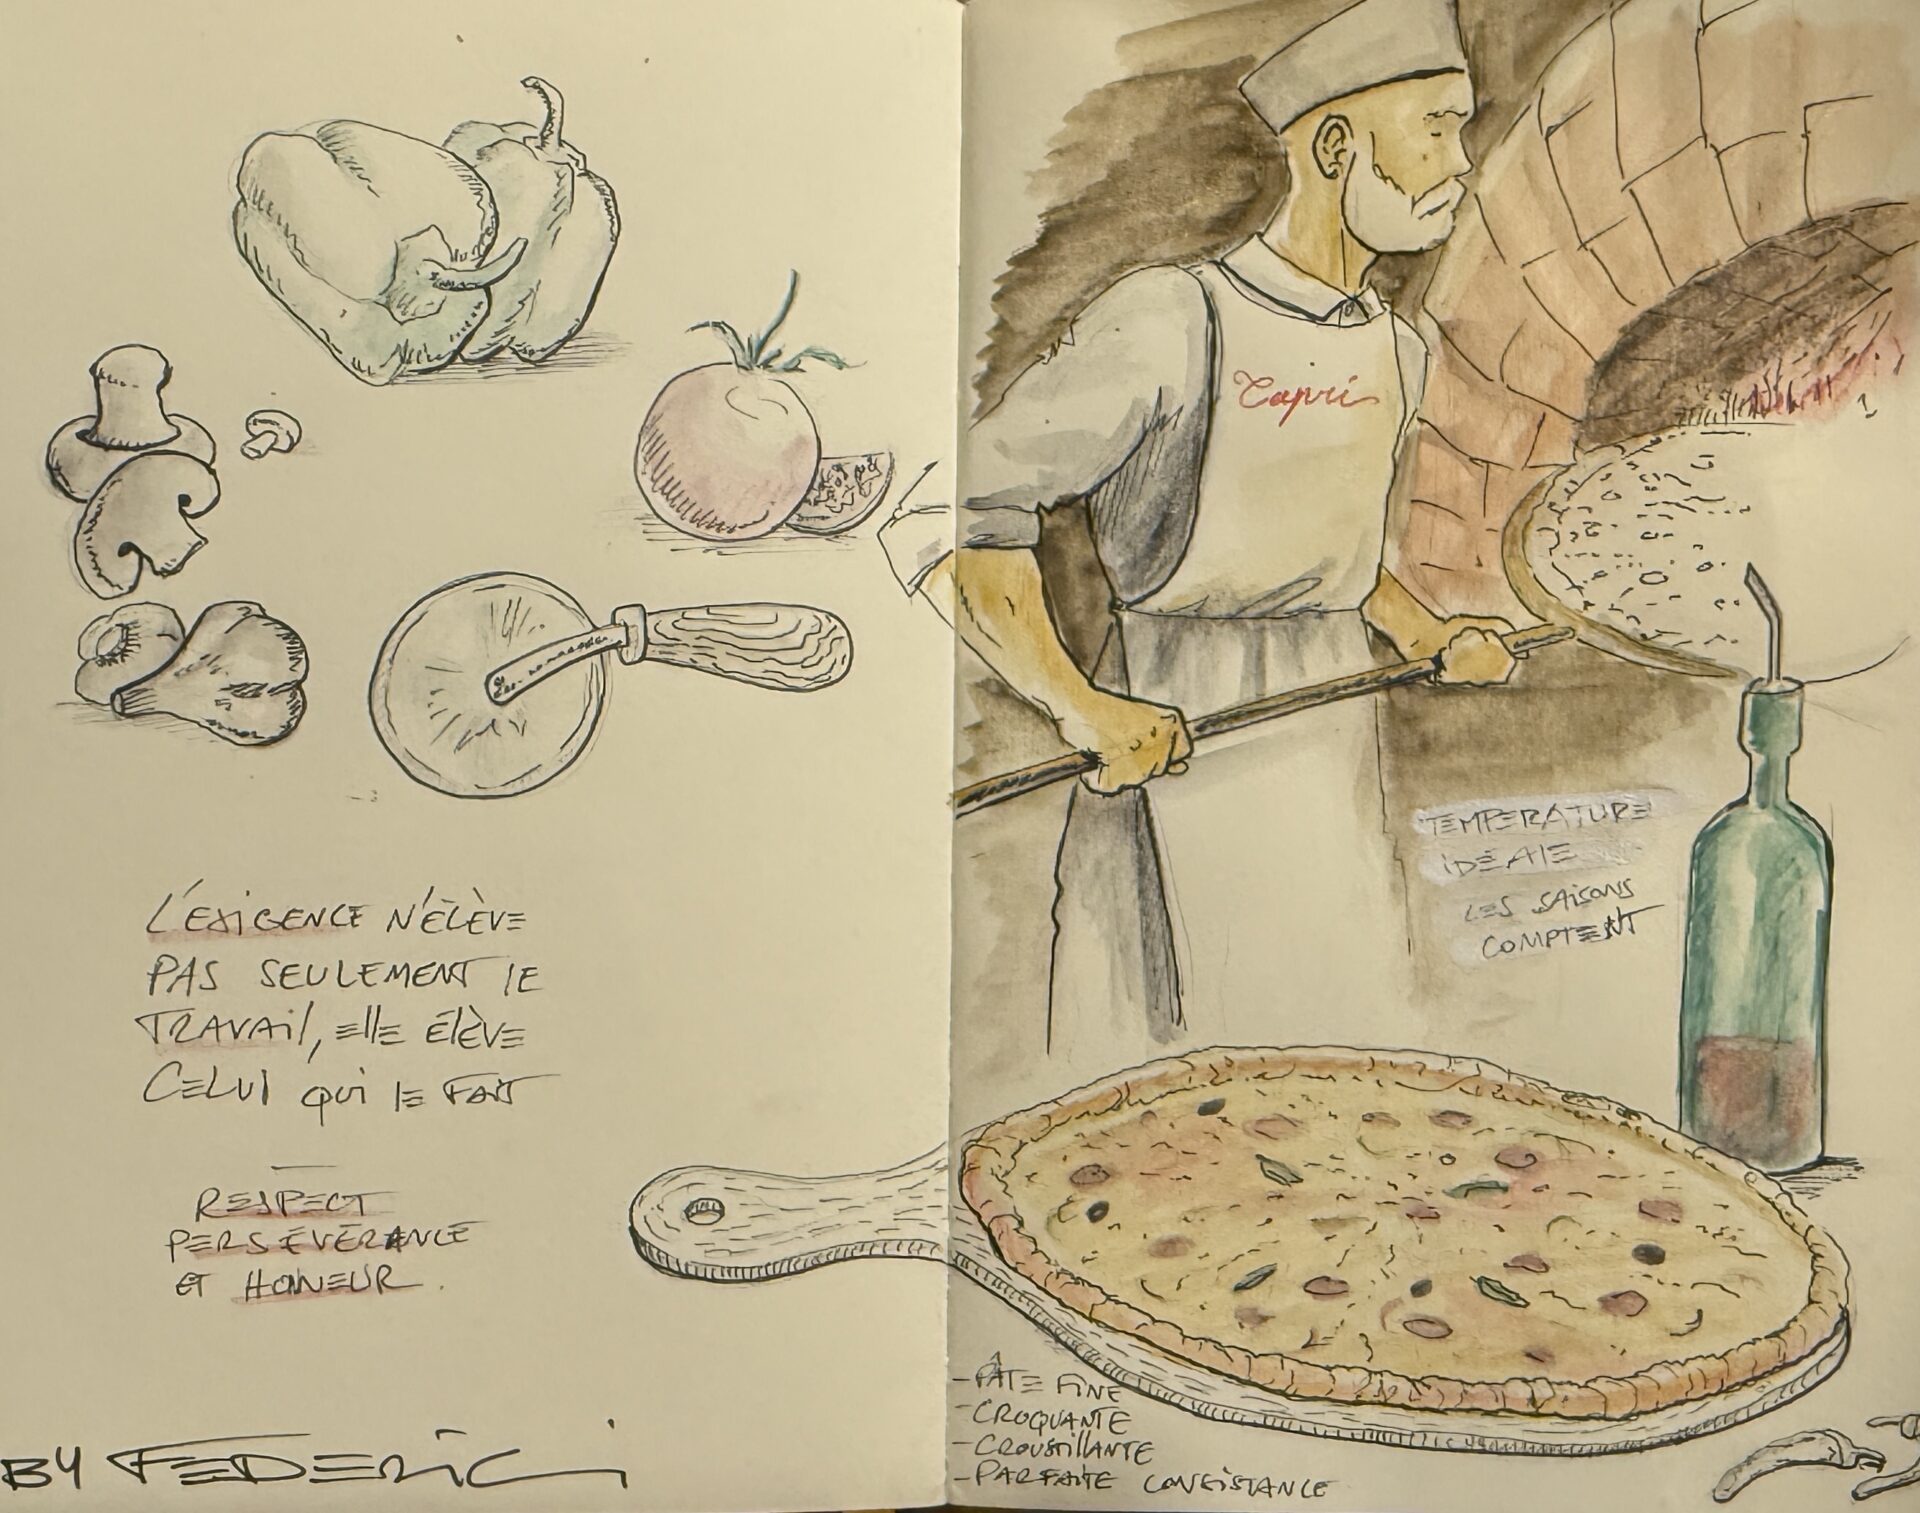 L'EXIGENCE N'ÉLÈVE
PAS SEULEMENT LE
TRAVAIL, ELLE ÉLÈVE
CELUI QUI LE FAIT
RESPECT
PERSÉVÉRANCE
ET HONNEUR.
BY FEDERICI
Capri
TEMPERATURE
IDEALE
LES SAISONS
COMPTENT
- PÂTE FINE
- CROQUANTE
- CROUSTILLANTE
- PARFAITE CONSISTANCE